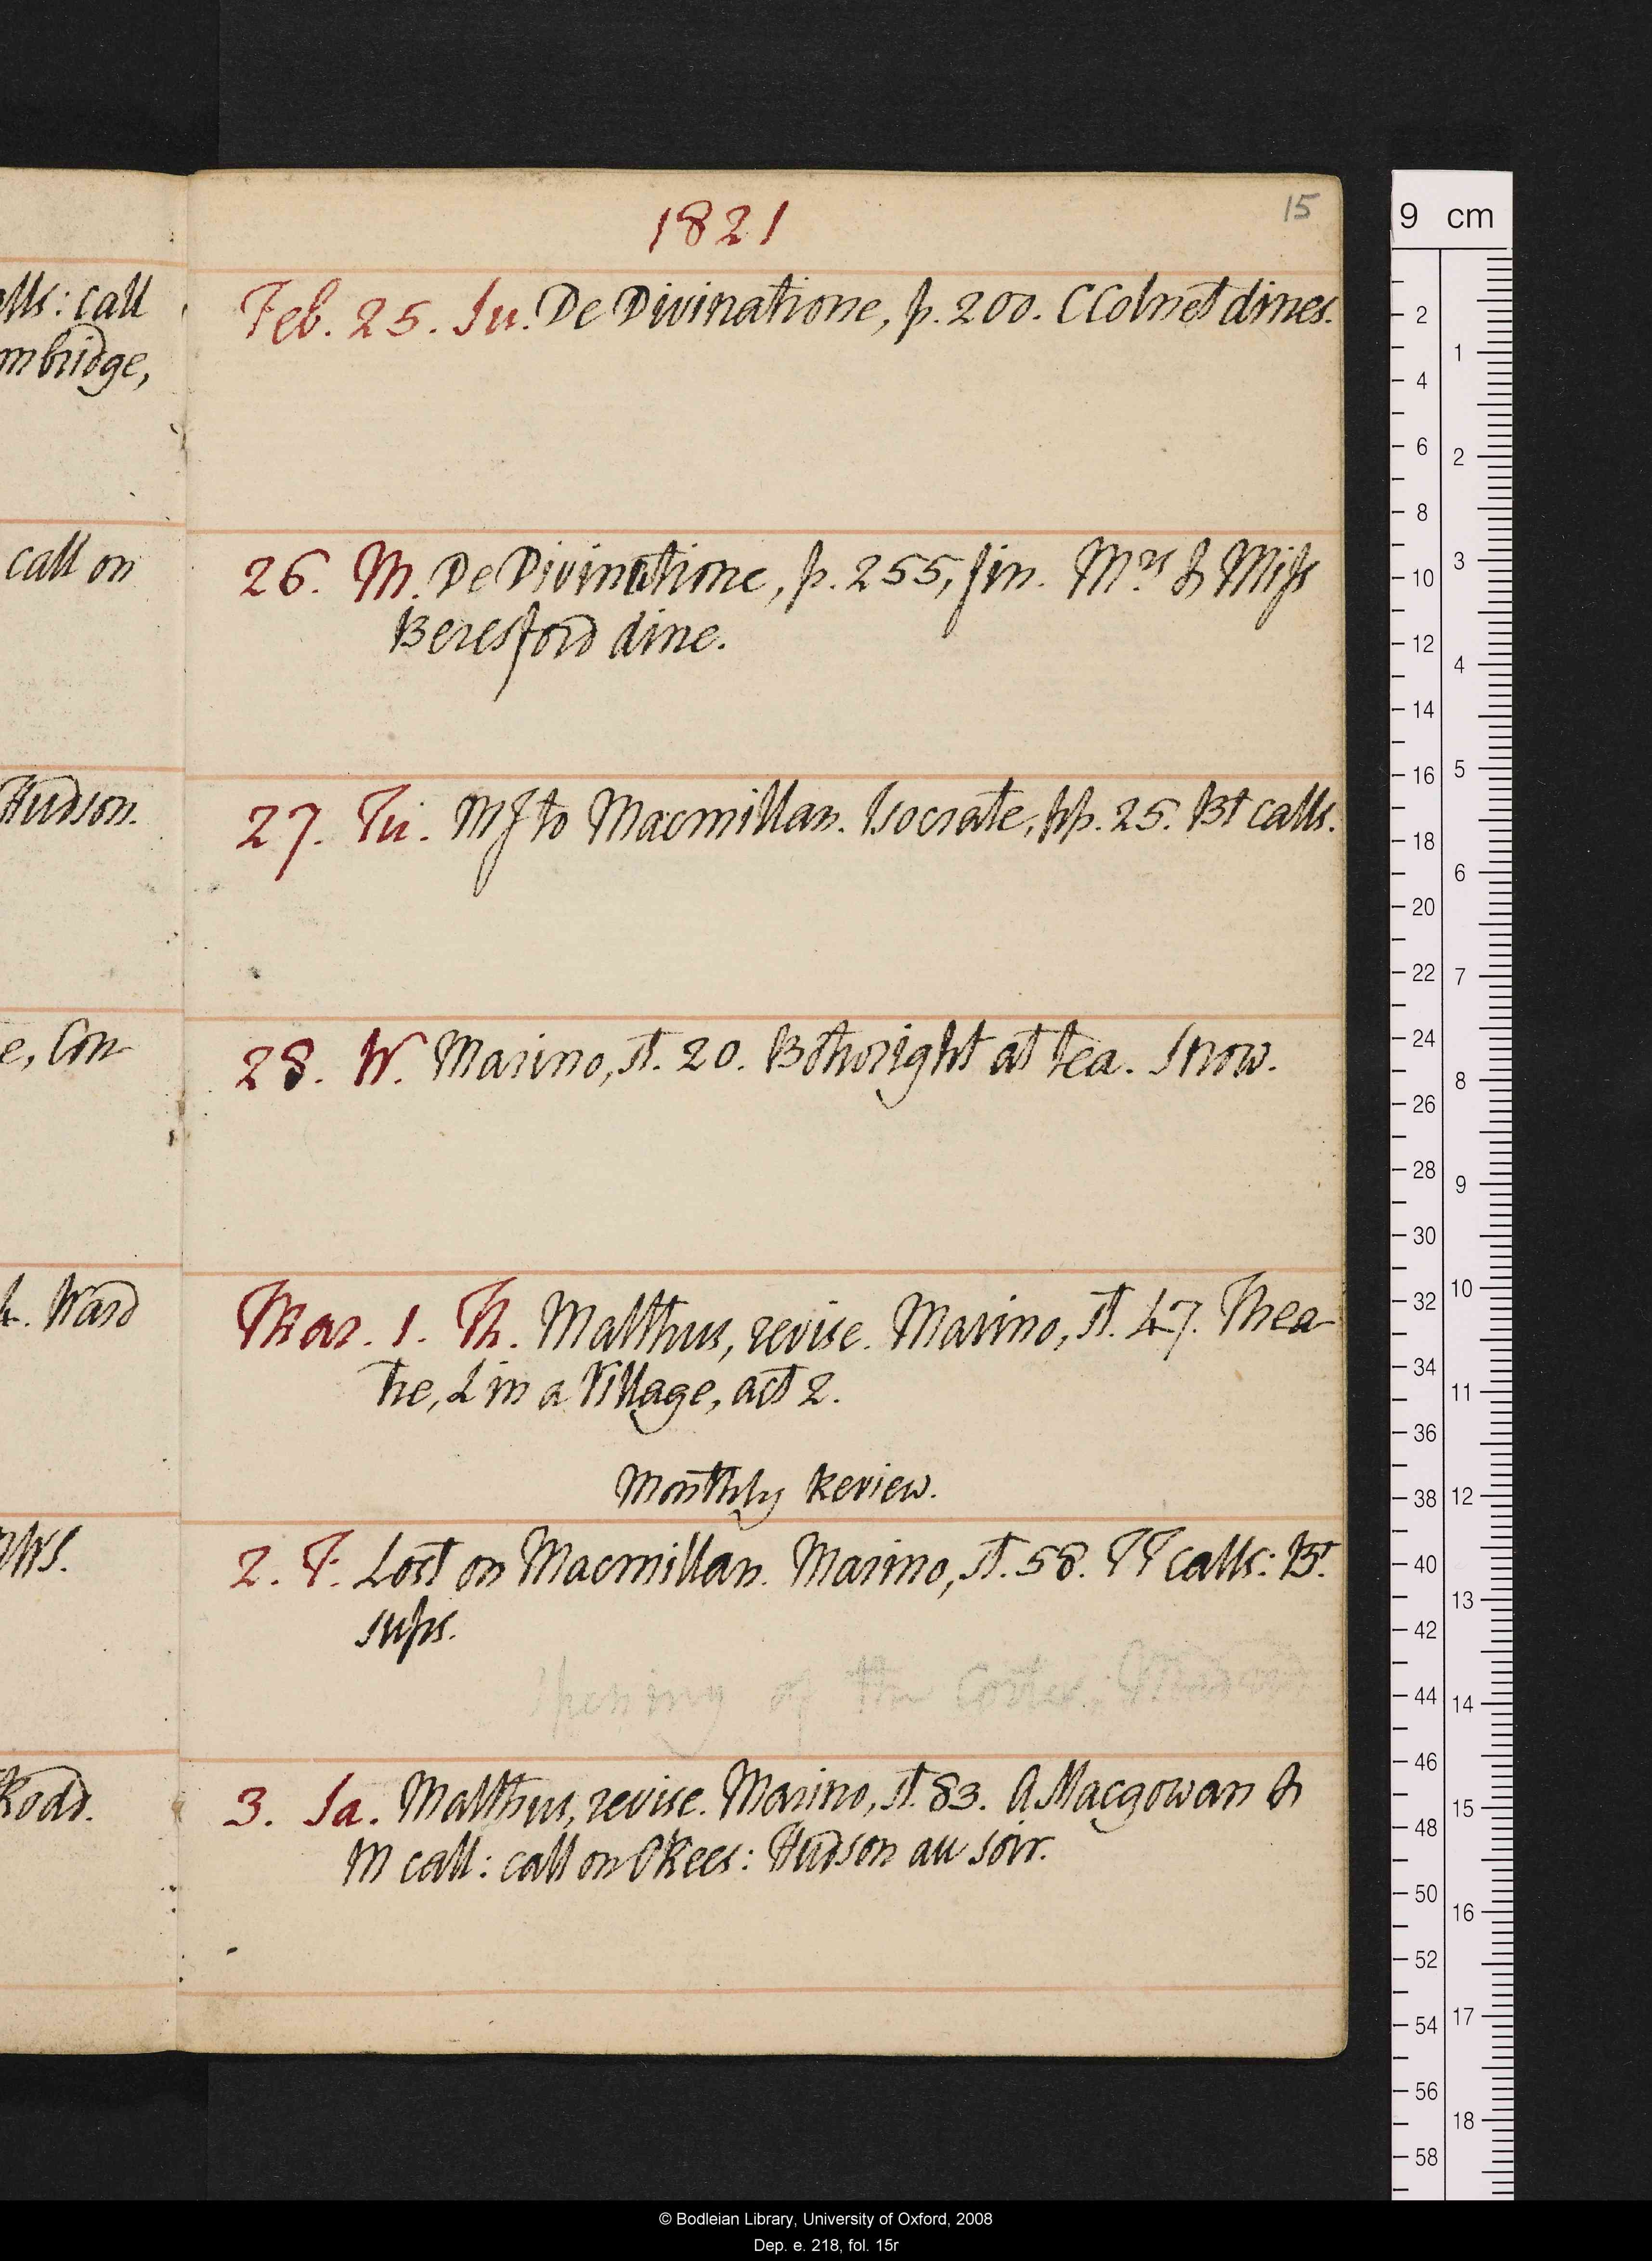 1821
15
lls: call
mbridge,
Feb. 25. Su. De Divinatione, p. 200. C Colnet dines.
call on
26. M. De Divinatione, p. 255, fin. Mrs & Miss
Beresford dine.
Hudson.
27. Tu. MJ to Macmillan. Isocrate, pp. 25. Bt calls.
e, Con-
28. W. Marino, st. 20. Bothwright at tea. Snow.
Ward
Mar. 1. Th. Malthus, revise. Marino, st. 47. Thea-
tre, L in a Village, act 2.
Monthly Review.
2. F. Lost on Macmillan. Marino, st. 58. TT calls: Bt.
sups.
opening of the Cortes,
Rodd.
3. Sa. Malthus, revise. Marino, st. 83. A Macgowan &
M call: call on OKees: Hudson au soir.
9 cm
2 4 6 8 10 12 14 16 18 20 22 24 26 28 30 32 34 36 38 40 42 44 46 48 50 52 54 56 58
1 2 3 4 5 6 7 8 9 10 11 12 13 14 15 16 17 18
© Bodleian Library, University of Oxford, 2008
Dep. e. 218, fol. 15r